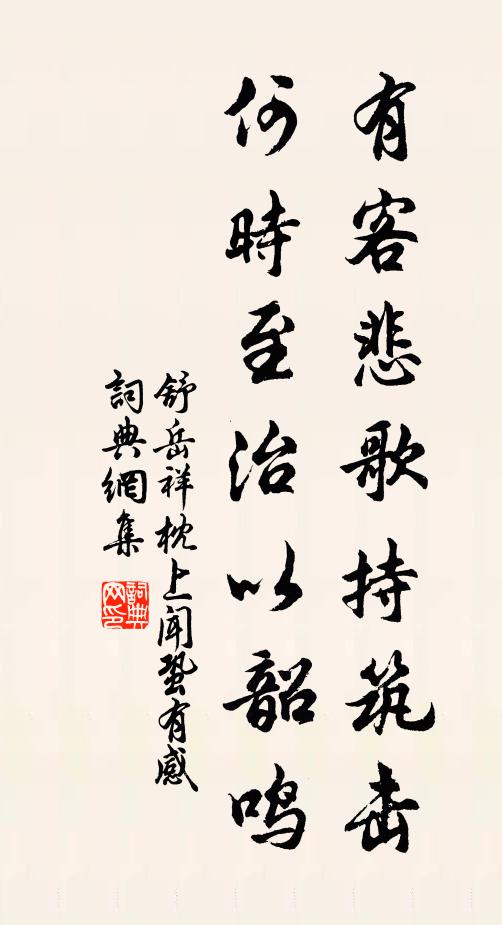 有客悲歌持筑击
何時至治以韶鸣
舒岳祥枕上闻蛩有感
詞典網集
詞典网印